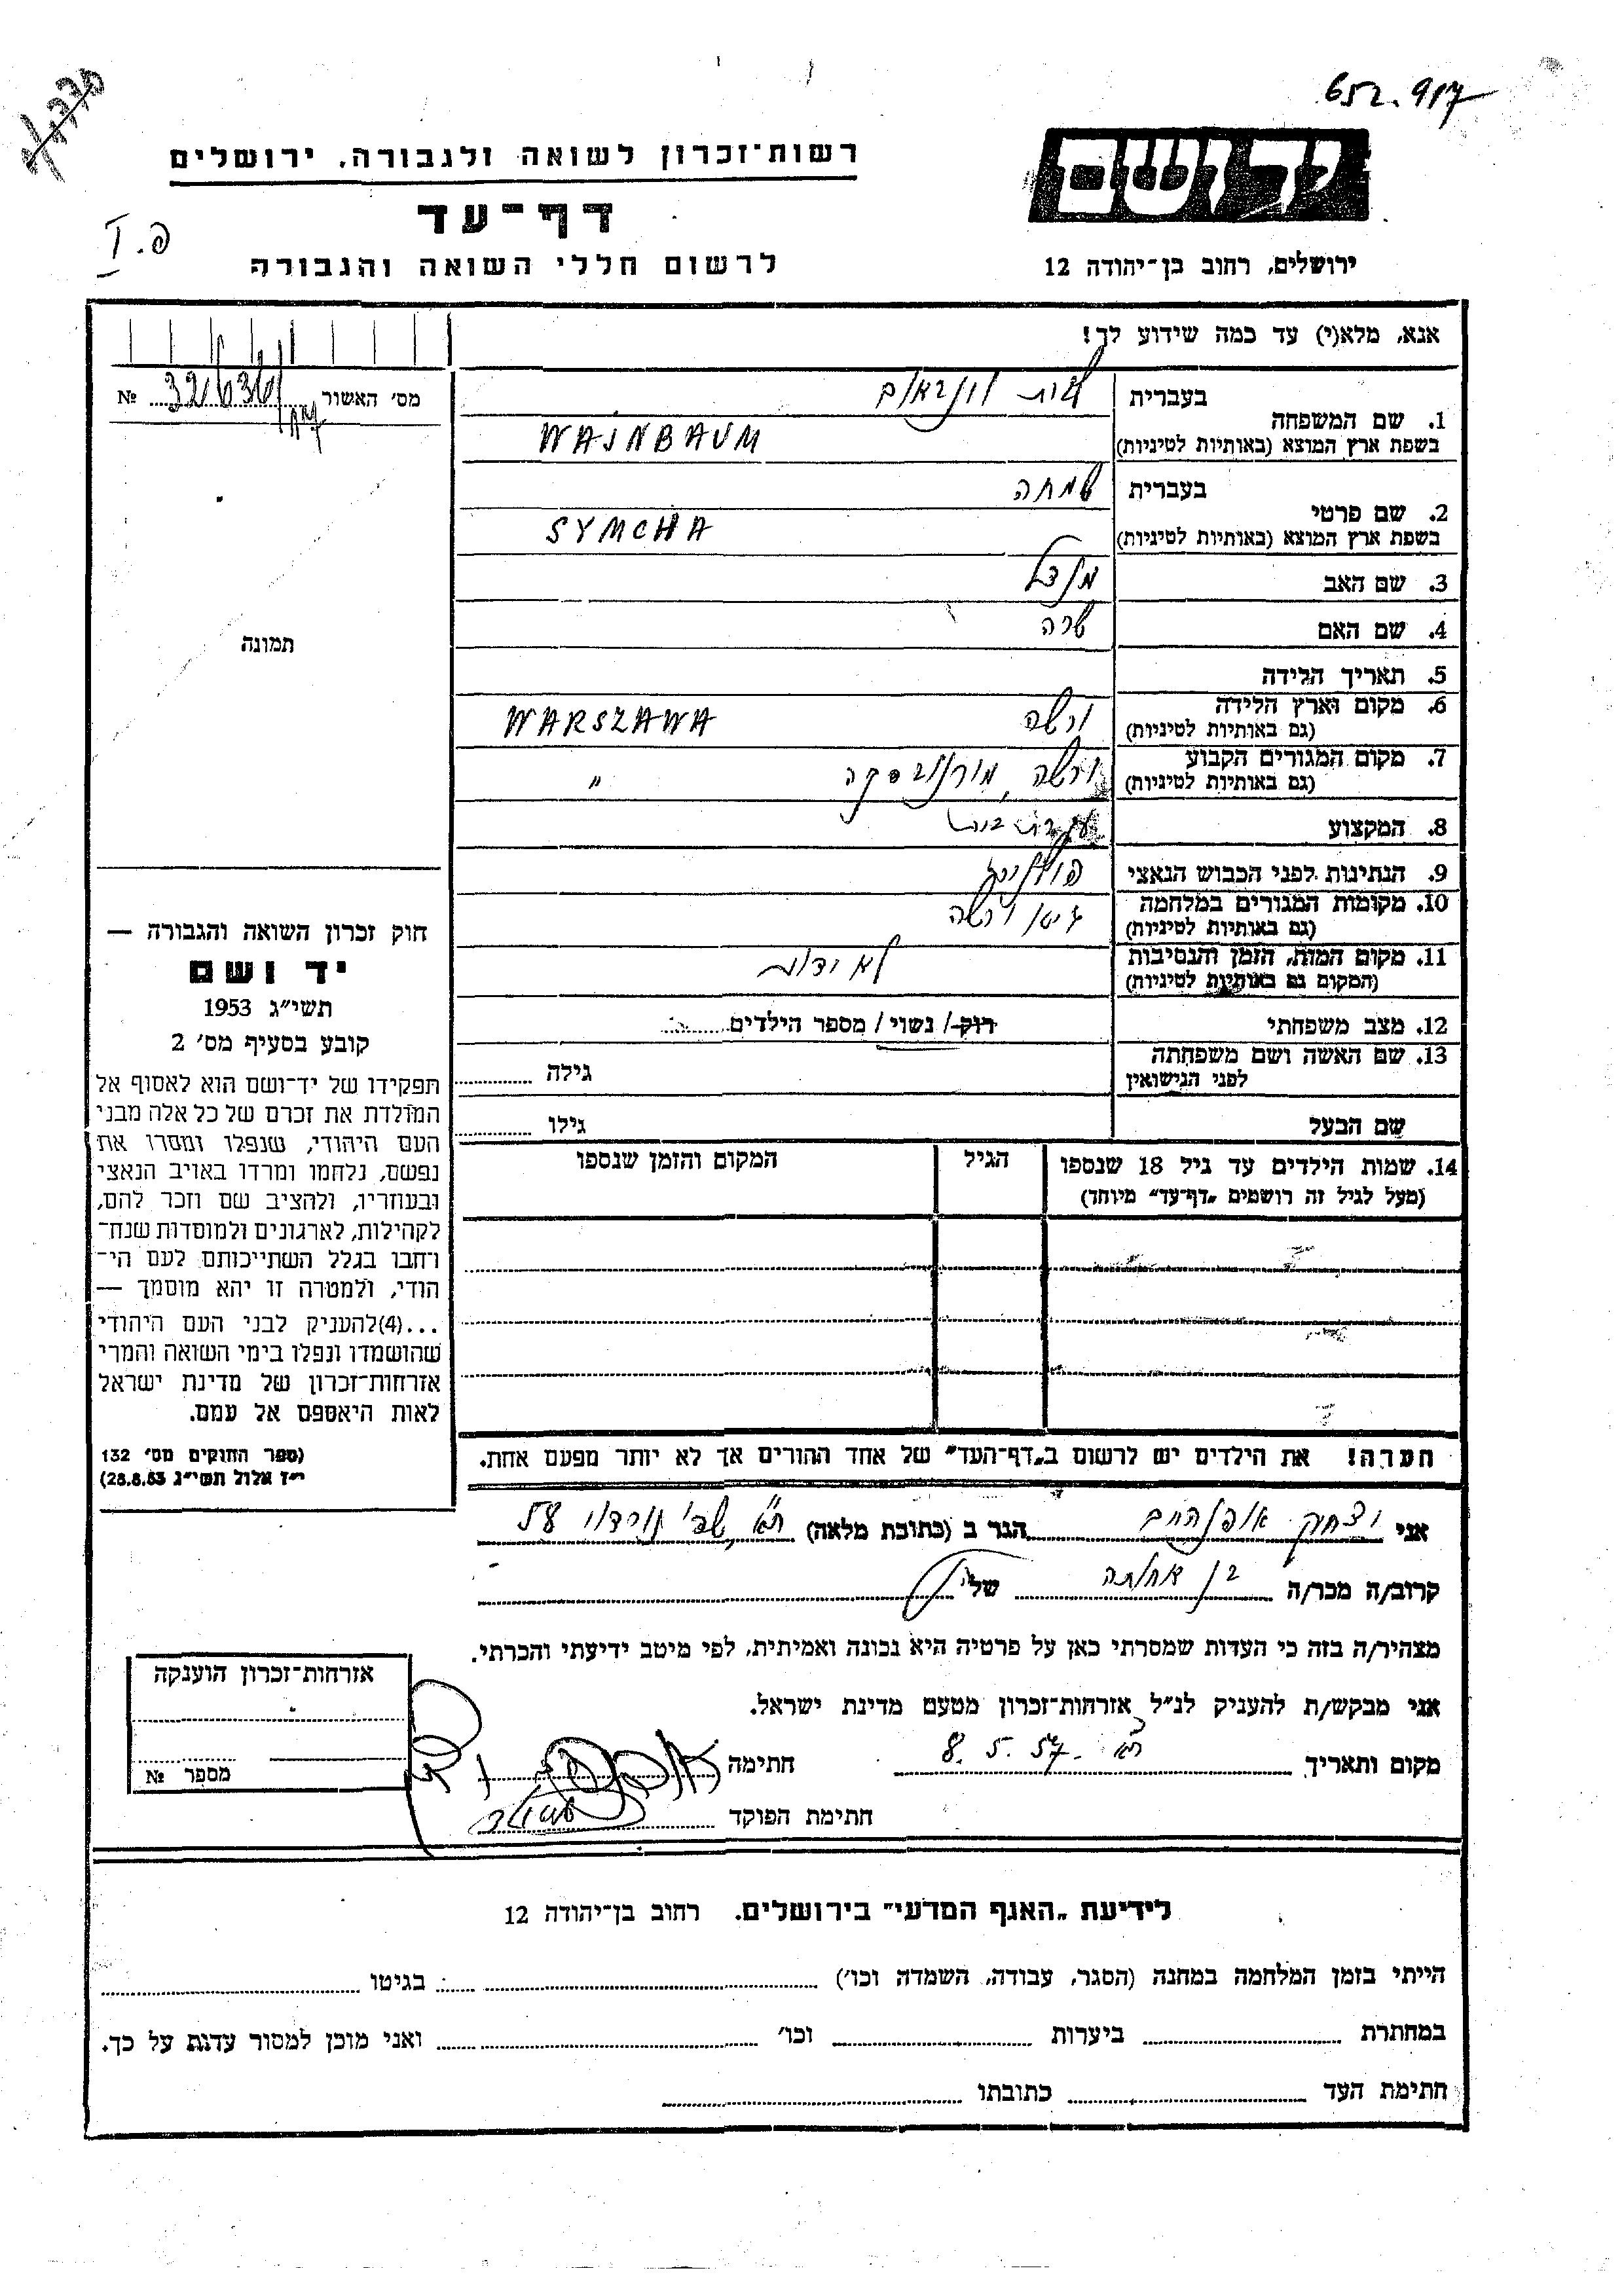 652.917
רשות־זכרון לשואה ולגבורה, ירושלים
יד ושם
דף־עד
פ. I
לרשום חללי השואה והגבורה
ירושלים, רחוב בן־יהודה 12
אנא, מלא(י) עד כמה שידוע לך!
מס׳ האשור № 32636
1. שם המשפחה
בעברית
בשפת ארץ המוצא (באותיות לטיניות) WAJNBAUM
2. שם פרטי
בעברית שמחה
בשפת ארץ המוצא (באותיות לטיניות) SYMCHA
3. שם האב מנדל
4. שם האם שרה
5. תאריך הלידה
6. מקום וארץ הלידה (גם באותיות לטיניות) ורשה WARSZAWA
7. מקום המגורים הקבוע (גם באותיות לטיניות) ורשה, מורנובסקה "
8. המקצוע
9. הנתינות לפני הכבוש הנאצי
10. מקומות המגורים במלחמה (גם באותיות לטיניות) ורשה
11. מקום המות, הזמן והנסיבות (המקום גם באותיות לטיניות) לא ידוע
12. מצב משפחתי רוק / נשוי / מספר הילדים
13. שם האשה ושם משפחתה לפני הנישואין גילה
שם הבעל גילו
14. שמות הילדים עד גיל 18 שנספו (מעל לגיל זה רושמים „דף־עד" מיוחד)
הגיל
המקום והזמן שנספו
תמונה
חוק זכרון השואה והגבורה —
יד ושם
תשי״ג 1953
קובע בסעיף מס׳ 2
תפקידו של יד־ושם הוא לאסוף אל
המולדת את זכרם של כל אלה מבני
העם היהודי, שנפלו ומסרו את
נפשם, נלחמו ומרדו באויב הנאצי
ובעוזריו, ולהציב שם וזכר להם,
לקהילות, לארגונים ולמוסדות שנח־
רחבו בגלל השתייכותם לעם הי־
הודי, ולמטרה זו יהא מוסמך —
...(4)להעניק לבני העם היהודי
שהושמדו ונפלו בימי השואה והמרי
אזרחות־זכרון של מדינת ישראל
לאות היאספם אל עמם.
(ספר החוקים מס׳ 132
י״ז אלול תשי״ג 28.8.53)
הערה! את הילדים יש לרשום ב„דף־העד" של אחד ההורים אך לא יותר מפעם אחת.
אני יצחק אופנהיים הגר ב (כתובת מלאה) ת״א, שד׳ נורדוי
קרוב/ה מכר/ה בן אחותה של
מצהיר/ה בזה כי העדות שמסרתי כאן על פרטיה היא נכונה ואמיתית, לפי מיטב ידיעתי והכרתי.
אני מבקש/ת להעניק לנ״ל אזרחות־זכרון מטעם מדינת ישראל.
מקום ותאריך ת״א 8. 5. 57 חתימה
חתימת הפוקד
אזרחות־זכרון הוענקה
מספר №
לידיעת „האגף המדעי" בירושלים. רחוב בן־יהודה 12
הייתי בזמן המלחמה במחנה (הסגר, עבודה, השמדה וכו׳) בגיטו
במחתרת ביערות וכו׳ ואני מוכן למסור עדות על כך.
חתימת העד כתובתו